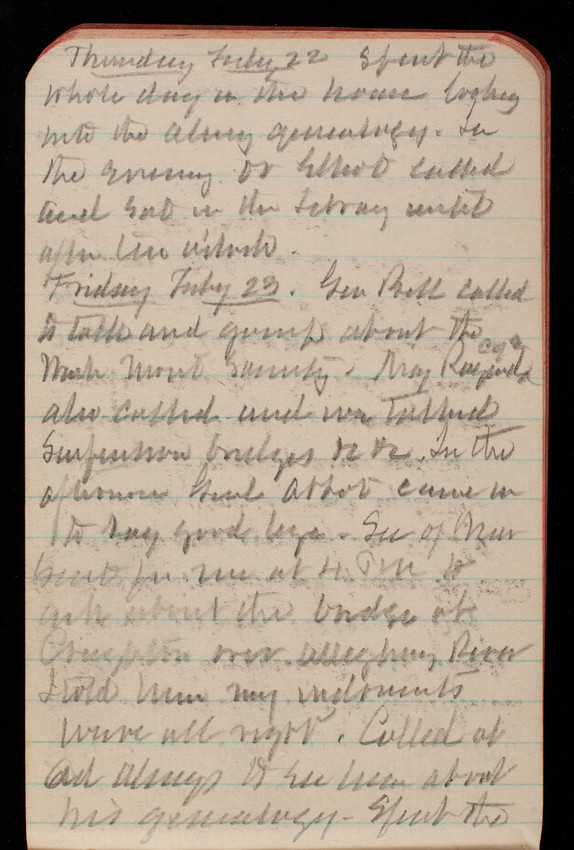 Thursday July 22 Spent the
whole day in the house looking
into the Almy genealogy. In
the evening Dr Elliot called
and sat in the library until
after ten o'clock.
Friday July 23. Gen Bell called
to talk and gossip about the
Wash Mont Society. Maj Raymond
also called and we talked
Suspension bridges &c &c. In the
afternoon Genl Abbot came in
to say good bye. Sec of War
sent for me at 4 PM to
ask about the bridge at
over Allegheny River
I told him my indorsements
were all right. Called at
Ad Almys to see him about
his genealogy. Spent the